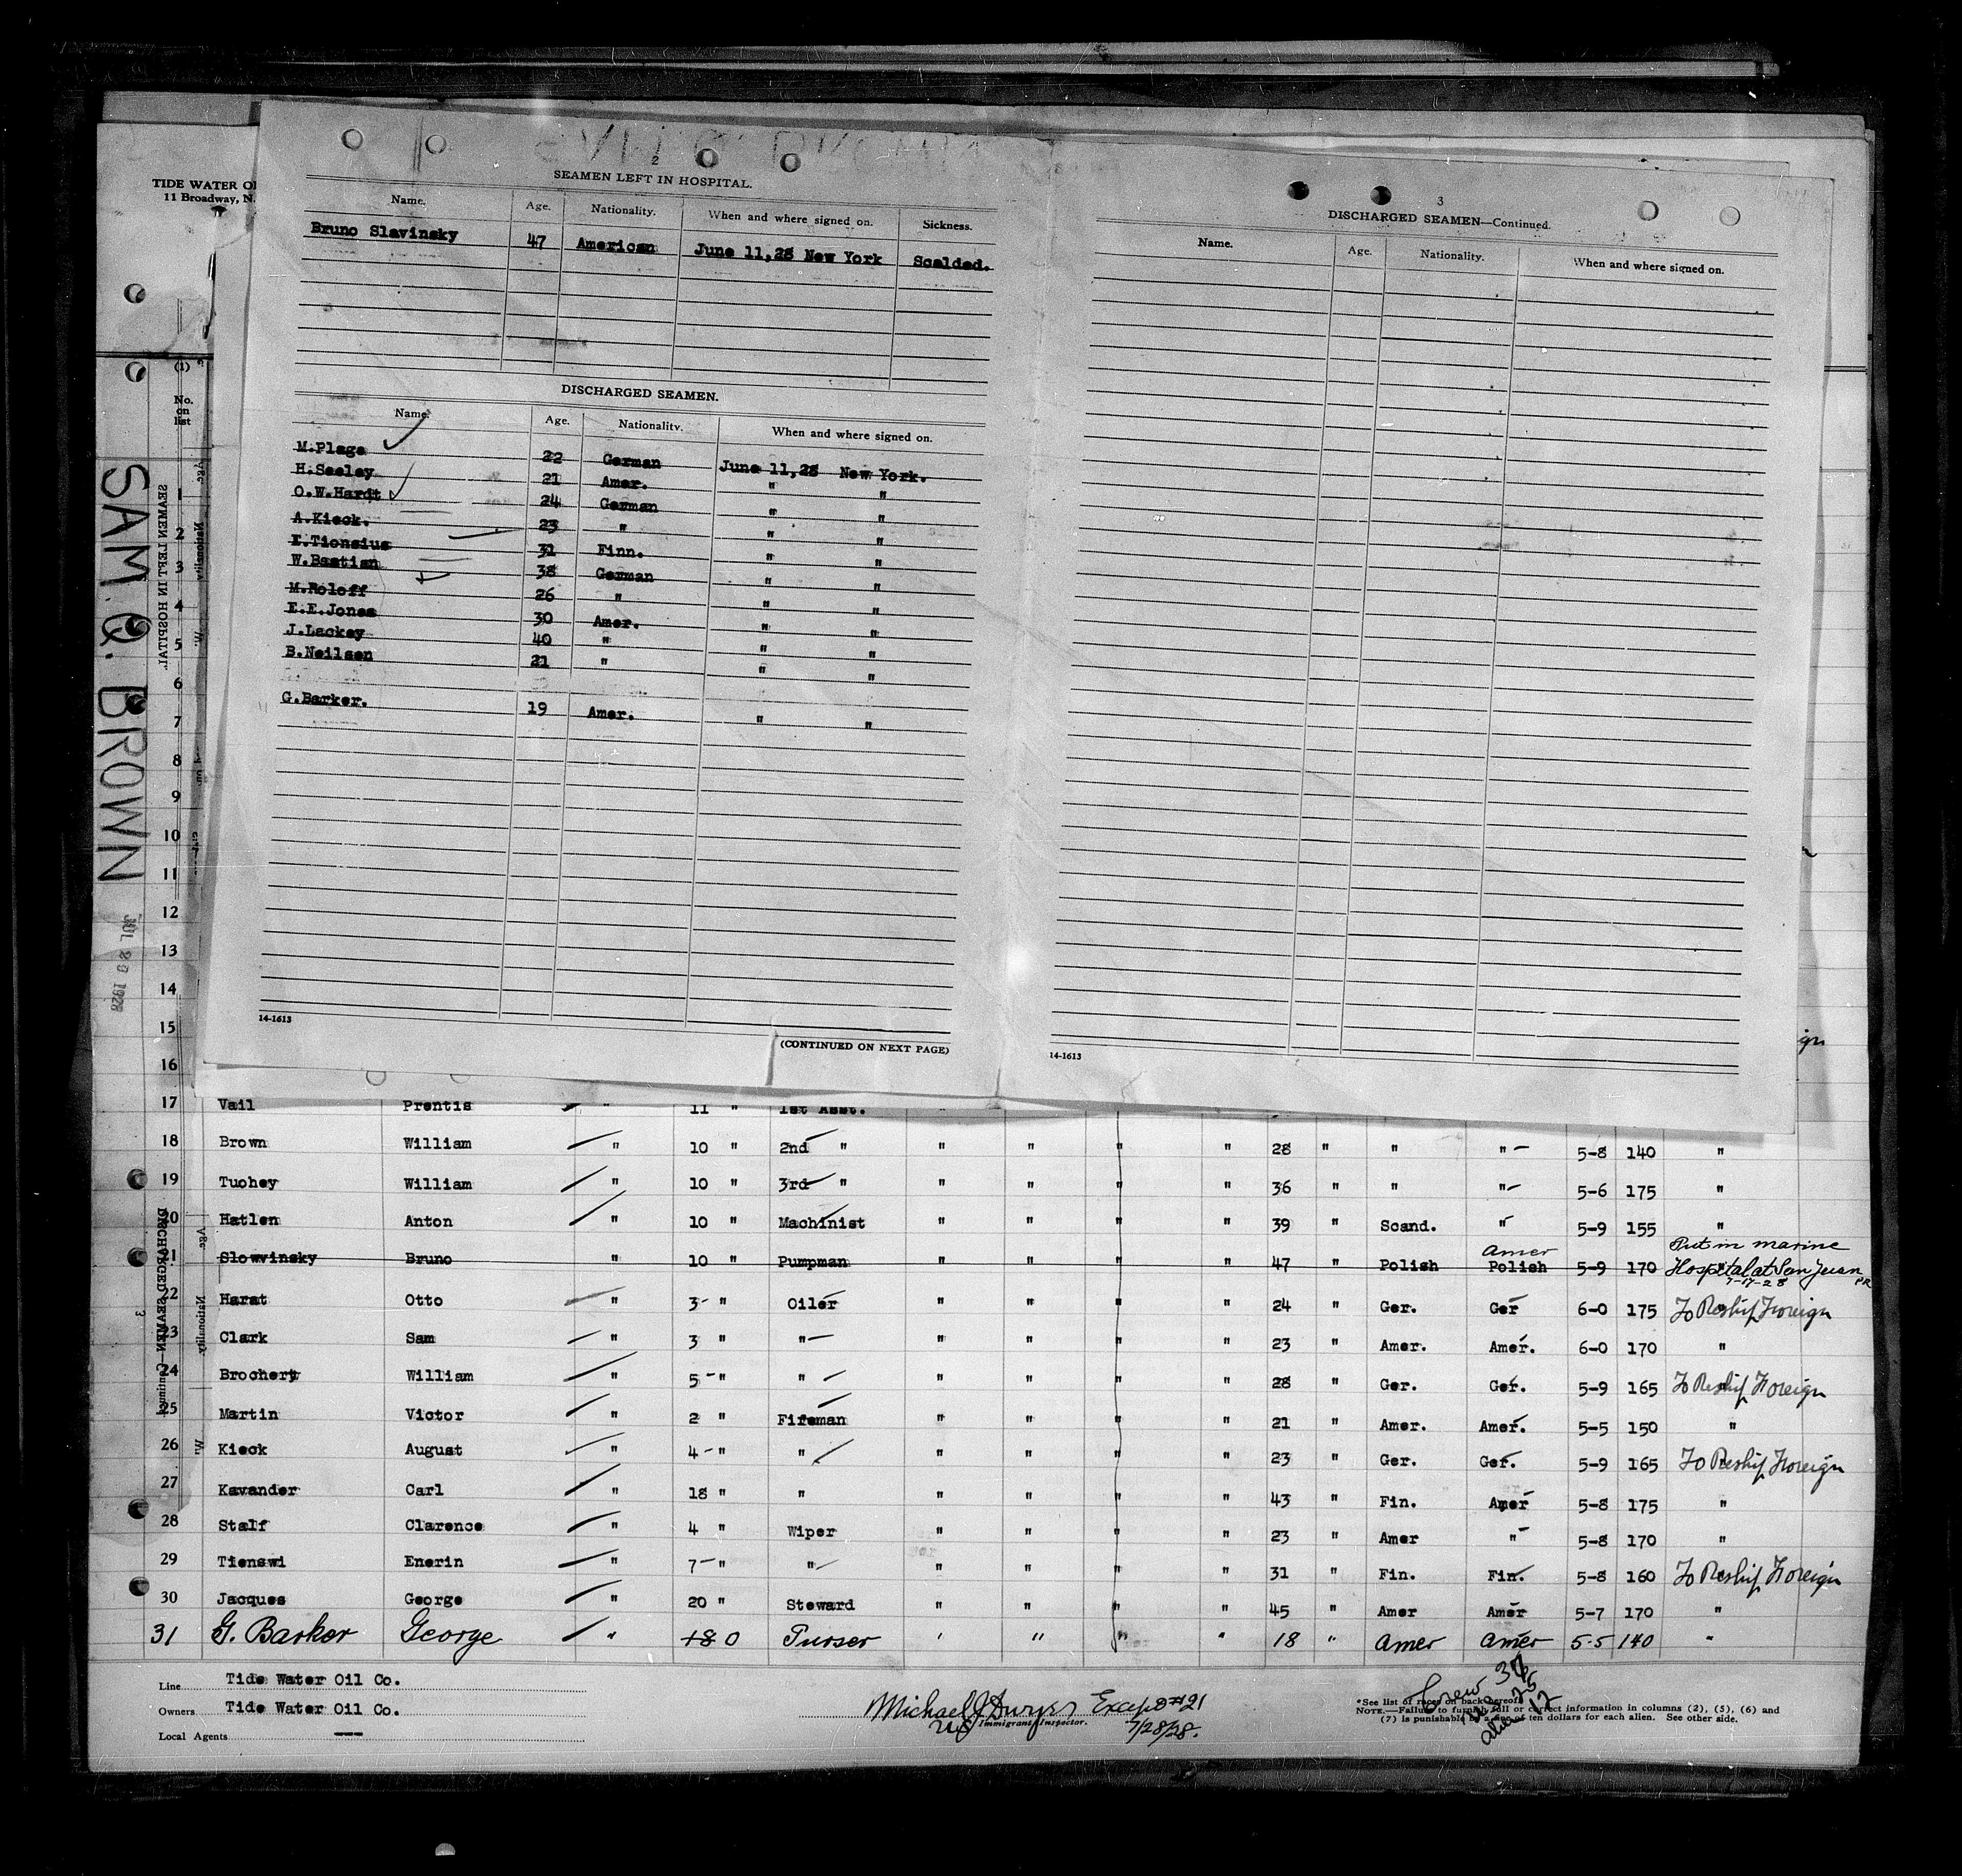 TIDE WATER O
11 Broadway, N.
2
SEAMEN LEFT IN HOSPITAL.
Name. Age. Nationality. When and where signed on. Sickness.
Bruno Slavinsky 47 American June 11,28 New York Scalded.
DISCHARGED SEAMEN.
Name. Age. Nationality. When and where signed on.
M.Plage 22 German June 11,28 New York.
H.Seeley 21 Amer. " "
O.W.Hardt 24 German " "
A.Kieck. 23 " " "
E.Tionsius 31 Finn. " "
W.Bastian 38 German " "
M.Roloff 26 " " "
E.E.Jones 30 Amer. " "
J.Lackey 40 " " "
B.Neilsen 21 " " "
G.Barker. 19 Amer. " "
14-1613
(CONTINUED ON NEXT PAGE)
3
DISCHARGED SEAMEN—Continued.
Name. Age. Nationality. When and where signed on.
14-1613
(1)
No.
on
list
SAM Q. BROWN
JUL 28 1928
SEAMEN LEFT IN HOSPITAL.
DISCHARGED SEAMEN—Continued
1
2
3
4
5
6
7
8
9
10
11
12
13
14
15
16
17 Vail Prentis " 11 " 1st Asst. "
18 Brown William " 10 " 2nd " " " " " 28 " " " 5-8 140 "
19 Tuohey William " 10 " 3rd " " " " " 36 " " " 5-6 175 "
20 Hatlen Anton " 10 " Machinist " " " " 39 " Scand. " 5-9 155 "
Amer Put in marine
21 Slowvinsky Bruno " 10 " Pumpman " " " " 47 " Polish Polish 5-9 170 Hospital at San Juan PR
7-17-28
22 Harat Otto " 3 " Oiler " " " " 24 " Ger. Ger 6-0 175 To Reship Foreign
23 Clark Sam " 3 " " " " " " 23 " Amer. Amer. 6-0 170 "
24 Brochert William " 5 " " " " " " 28 " Ger. Ger. 5-9 165 To Reship Foreign
25 Martin Victor " 2 " Fireman " " " " 21 " Amer. Amer. 5-5 150 "
26 Kieck August " 4 " " " " " " 23 " Ger. Ger. 5-9 165 To Reship Foreign
27 Kavander Carl " 18 " " " " " " 43 " Fin. Amer 5-8 175 "
28 Stalf Clarence " 4 " Wiper " " " " 23 " Amer " 5-8 170 "
29 Tienswi Enerin " 7 " " " " " " 31 " Fin. Fin. 5-8 160 To Reship Foreign
30 Jacques George " 20 " Steward " " " " 45 " Amer Amer 5-7 170 "
31 G. Barker George " 18 0 Purser " " " " 18 " Amer Amer 5-5 140 "
Line Tide Water Oil Co.
Owners Tide Water Oil Co.
Local Agents ---
Michael J Dwyer Except #21
Immigrant Inspector.
7/28/28.
Crew
alien 12
*See list of races on back hereof.
NOTE.—Failure to furnish full or correct information in columns (2), (5), (6) and
(7) is punishable by a fine of ten dollars for each alien. See other side.